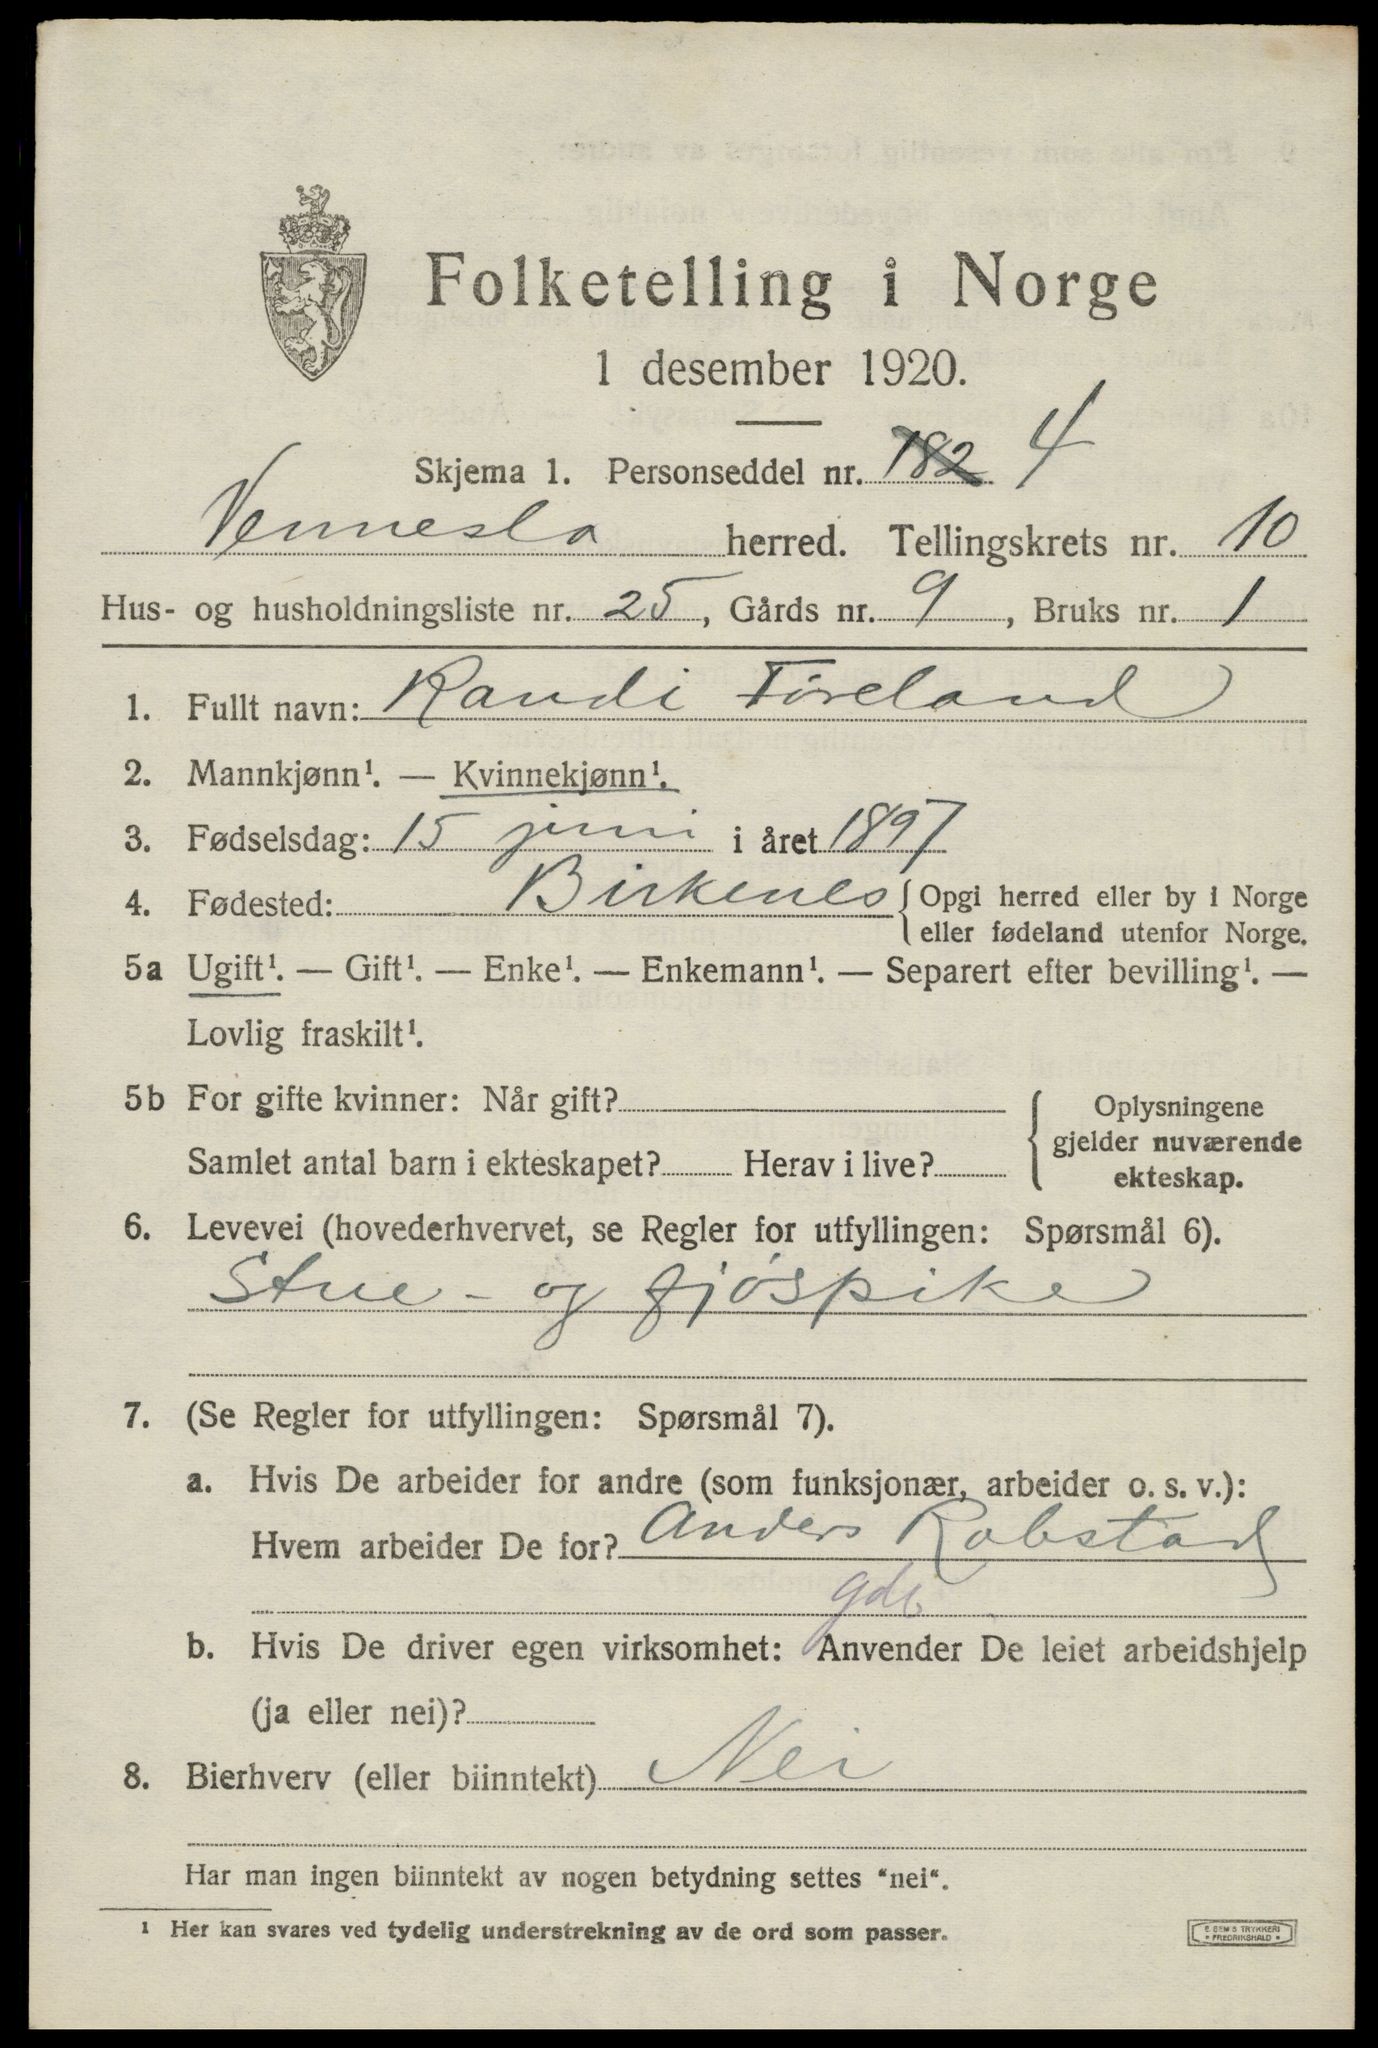 Folketelling i Norge
1 desember 1920.
Skjema 1. Personseddel nr. 182 4
Vennesla herred. Tellingskrets nr. 10
Hus- og husholdningsliste nr. 25, Gårds nr. 9, Bruks nr. 1
1. Fullt navn: Randi Föreland
2. Mannkjønn¹. — Kvinnekjønn¹.
3. Fødselsdag: 15 juni i året 1897
4. Fødested: Birkenes { Opgi herred eller by i Norge
eller fødeland utenfor Norge.
5a Ugift¹. — Gift¹. — Enke¹. — Enkemann¹. — Separert efter bevilling¹. —
Lovlig fraskilt¹.
5b For gifte kvinner: Når gift?
Samlet antal barn i ekteskapet? Herav i live?
Oplysningene
gjelder nuværende
ekteskap.
6. Levevei (hovederhvervet, se Regler for utfyllingen: Spørsmål 6).
Stue- og fjöspike
7. (Se Regler for utfyllingen: Spørsmål 7).
a. Hvis De arbeider for andre (som funksjonær, arbeider o. s. v.):
Hvem arbeider De for? Anders Robstad
gdb
b. Hvis De driver egen virksomhet: Anvender De leiet arbeidshjelp
(ja eller nei)?
8. Bierhverv (eller biinntekt) Nei
Har man ingen biinntekt av nogen betydning settes "nei".
¹ Her kan svares ved tydelig understrekning av de ord som passer.
E. SEM'S TRYKKERI
• FREDRIKSHALD •